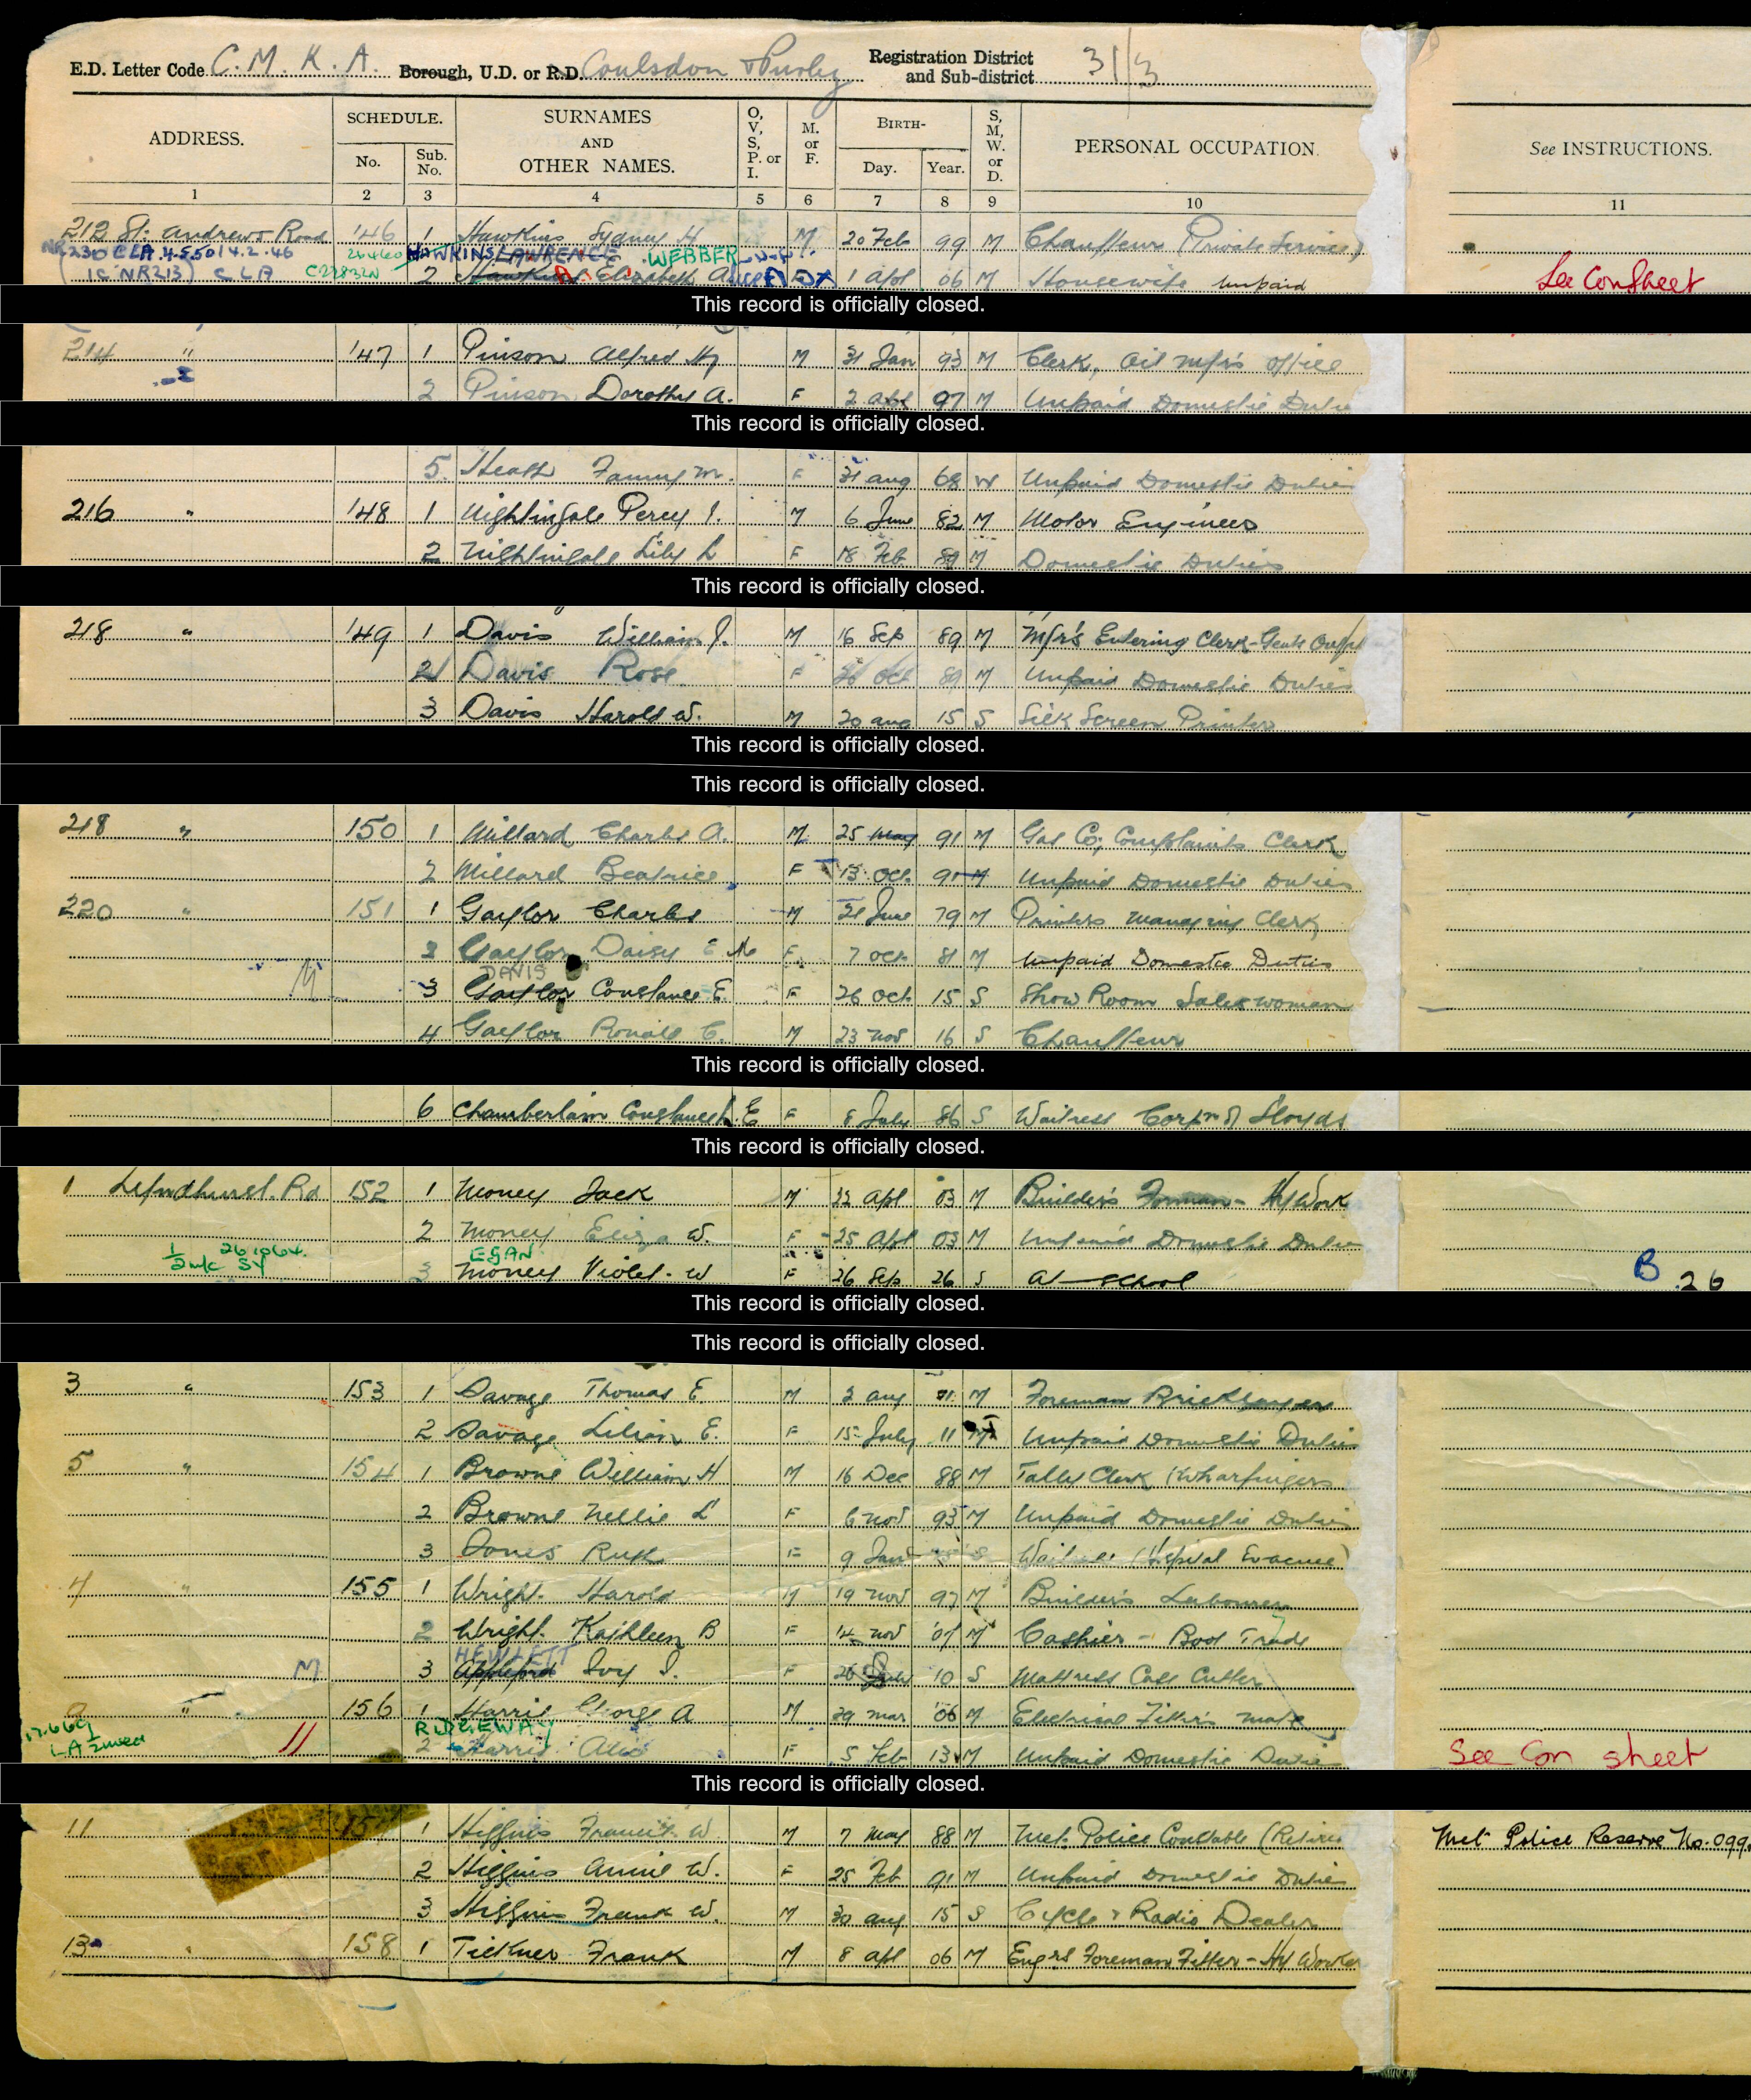 E.D. Letter Code C. M. K. A. Borough, U.D. or R.D. Coulsdon & Purley Registration District and Sub-district 31/3
ADDRESS. SCHEDULE. No. Sub. No. SURNAMES AND OTHER NAMES. O, V, S, P. or I. M. or F. BIRTH- Day. Year. S, M, W. or D. PERSONAL OCCUPATION. See INSTRUCTIONS.
1 2 3 4 5 6 7 8 9 10 11
212 St. Andrews Road 146 1 Hawkins Sydney H M 20 Feb 99 M Chauffeur (Private Service)
HAWKINS LAWRENCE WEBBER
2 Hawkins Elizabeth A 1 Apl 06 M Housewife unpaid See Con Sheet
This record is officially closed.
214 " 147 1 Pinson Alfred Hy M 31 Jan 93 M Clerk, Oil Mfrs office
2 Pinson Dorothy A. F 2 Apl 97 M Unpaid Domestic Dutie
This record is officially closed.
5. Heath Fanny M. F 31 Aug 68 W Unpaid Domestic Duties
216 " 148 1 Nightingale Percy J. M 6 June 82 M Motor Engineer
2 Nightingale Lily L F 18 Feb 89 M Domestic Duties
This record is officially closed.
218 " 149 1 Davis William J. M 16 Sep 89 M Mfr's Entering Clerk - Gents
2 Davis Rose F 26 Oct 89 M Unpaid Domestic Duties
3 Davis Harold W. M 20 Aug 15 S Silk Screen Printer
This record is officially closed.
This record is officially closed.
218 " 150 1 Millard Charles A. M 25 May 91 M Gas Co; Complaints Clerk
2 Millard Beatrice F 13 Oct 91 M Unpaid Domestic Duties
220 " 151 1 Gaylor Charles M 21 June 79 M Printers Managing Clerk
2 Gaylor Daisy E M F 7 Oct 81 M Unpaid Domestic Duties
DAVIS
M 3 Gaylor Constance E F 26 Oct 15 S Show Room Saleswoman
4 Gaylor Ronald C. M 23 Nov 16 S Chauffeur
This record is officially closed.
6 Chamberlain Constance E F 8 July 86 S Waitress Corpn of Lloyds
This record is officially closed.
1 Lyndhurst Rd 152 1 Money Jack M 22 Apl 03 M Builder's Forman - Hy Work
2 Money Eliza W. F 25 Apl 03 M Unpaid Domestic Dutie
EGAN
3 Money Violet W F 26 Sep 26 S At school B 26
This record is officially closed.
This record is officially closed.
3 " 153 1 Savage Thomas E. M 2 Aug 11 M Foreman Bricklayer
2 Savage Lilian E. F 15 July 11 M Unpaid Domestic Duties
5 " 154 1 Browne William H M 16 Dec 88 M Tally Clerk (Wharfingers
2 Browne Nellie L F 6 Nov 93 M Unpaid Domestic Duties
3 Jones Ruth F 9 Jan S (Hospital Evacuee)
4 " 155 1 Wright Harold M 19 Nov 97 M Builder's Labourer
2 Wright Kathleen B F 14 Nov 07 M Cashier - Boot Trade
HEWLETT
M 3 Appleford Ivy J. F 26 10 S Mattress Case Cutter
" 156 1 Harris George A M 29 Mar 06 M Electrical Fitter's mate
RIDGEWAY
2 Harris F 5 Feb 13 M Unpaid Domestic Duties See Con sheet
This record is officially closed.
11 157 1 Higgins Francis W. M 7 May 88 M Met. Police Constable (Retired Met Police Reserve No. 099
2 Higgins Annie W. F 25 Feb 91 M Unpaid Domestic Duties
3 Higgins Frank W. M 30 Aug 15 S Cycle & Radio Dealer
13 " 158 1 Tickner Frank M 8 Apl 06 M Engrs Foreman Fitter - Hy Worker